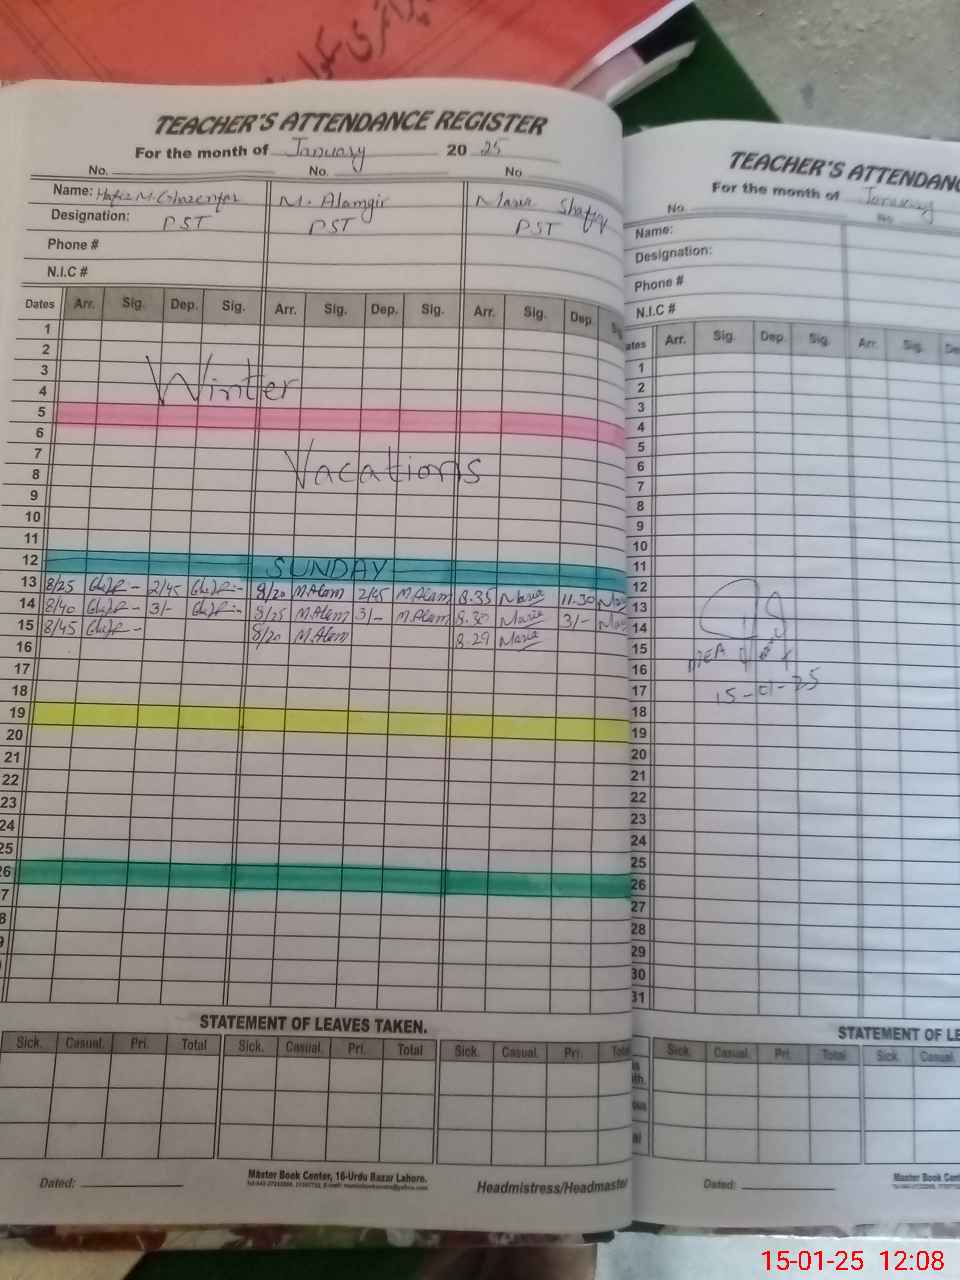 TEACHER'S ATTENDANCE REGISTER
For the month of January 2025
No. No. No
Name: Hafiz M. Ghazenfar M. Alamgir Maria Shafiq
Designation: PST PST PST
Phone #
N.I.C #
Dates Arr. Sig. Dep. Sig. Arr. Sig. Dep. Sig. Arr. Sig. Dep.
1
2
3
Winter
4
5
6
7
Vacations
8
9
10
11
12 SUNDAY
13 8/25 2/45 8/20 M.Alam 2/45 M.Alam 8.35 Maria 11.30
14 8/40 3/- 8/25 M.Alam 3/- M.Alam 8.30 Maria 3/-
15 8/45 8/20 M.Alam 8.29 Maria
16
17
18
19
20
21
22
23
24
25
26
7
8
9
STATEMENT OF LEAVES TAKEN.
Sick. Casual. Pri. Total Sick. Casual. Pri. Total Sick. Casual. Pri. Total
Dated:
Master Book Center, 16-Urdu Bazar Lahore.
Headmistress/Headmaster
TEACHER'S ATTENDANC
For the month of January
No No
Name:
Designation:
Phone #
N.I.C #
ates Arr. Sig. Dep. Sig. Arr. Sig. De
1
2
3
4
5
6
7
8
9
10
11
12
13
14
15
16
17
15-01-25
18
19
20
21
22
23
24
25
26
27
28
29
30
31
STATEMENT OF LE
Sick. Casual. Pri. Total Sick. Casual.
Dated:
Master Book Cent
15-01-25 12:08